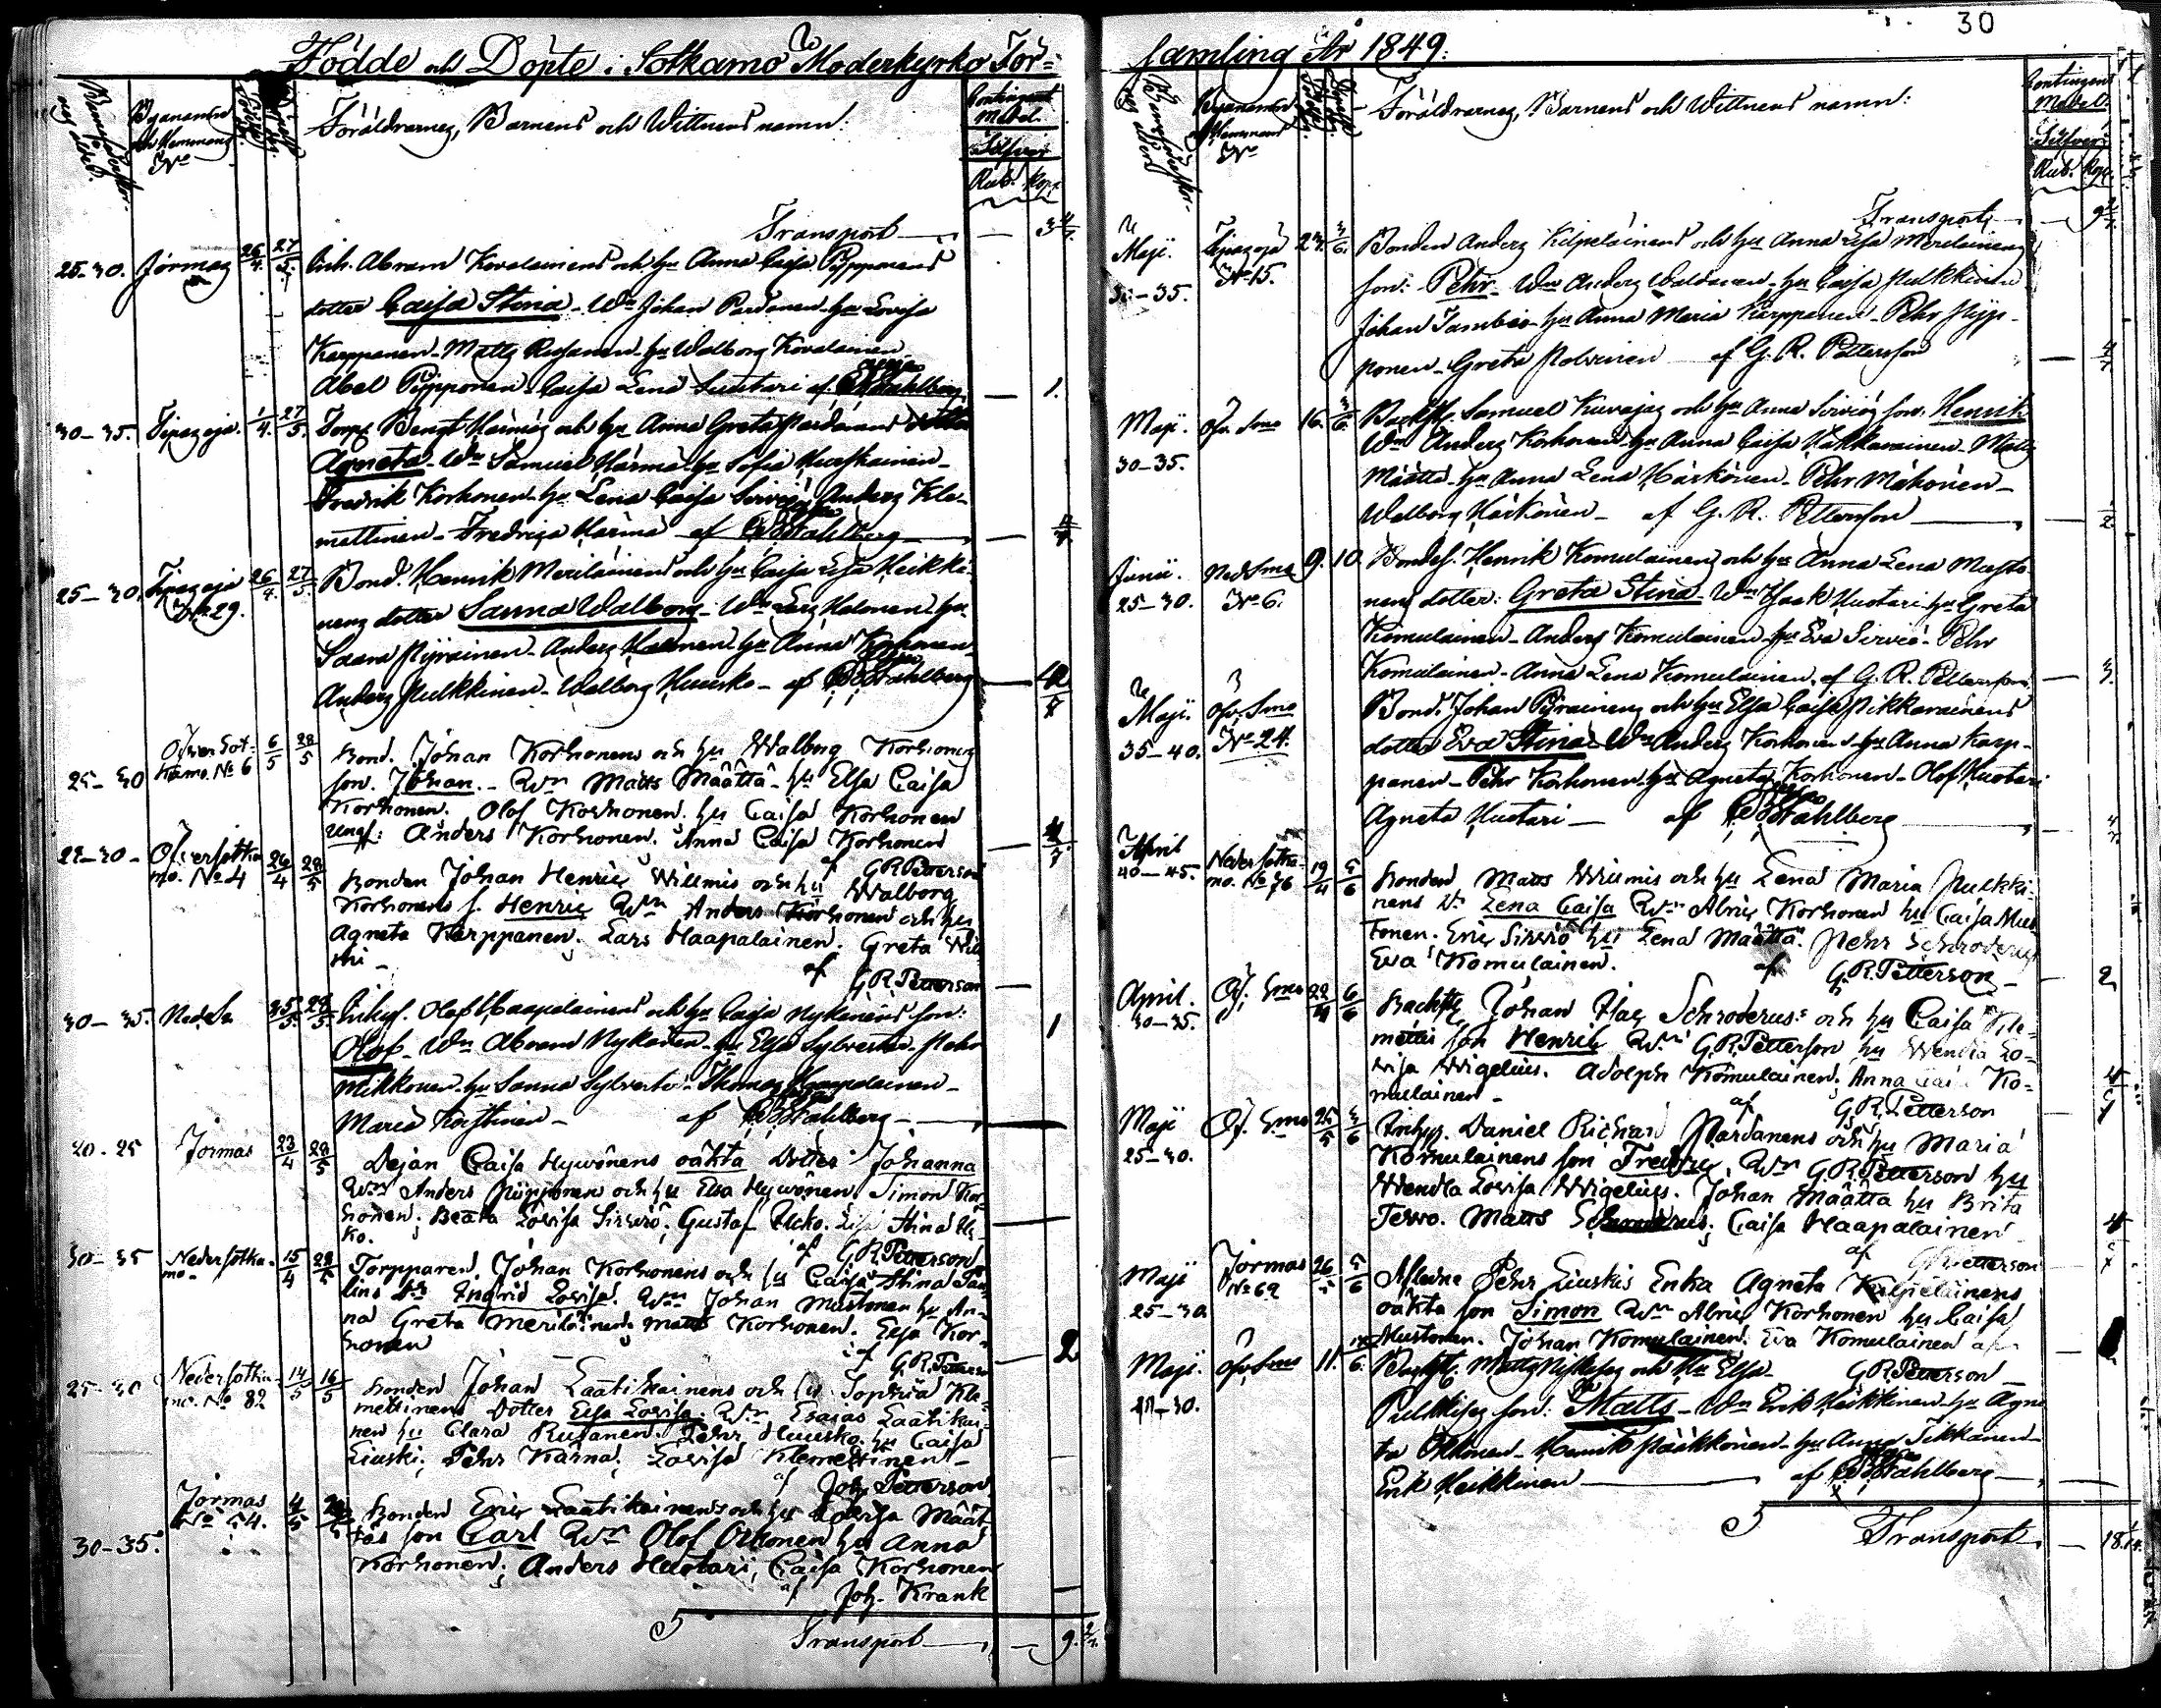 30
Födde och Döpte i Sotkamo Moderkyrko För-
samling År 1849.
Byanamn och Hemmans No
Föräldrarnes, Barnens och Wittnens namn:
Contingent Medel.
Silfver
Rub. Kop.
Transport — 3 4/7.
25-30. Jormas 26/4. 27/5. Inh. Abram Kovalainens och hu Anna Caisa Piipponens
dotter Caisa Stina - Wn Johan Pardanen - hu Lovisa
Karppanen - Matts Rusanen - hu Walborg Kovalainen
Abel Piipponen - Caisa Lena Huotari af Wahlberg — 1.
30-35. Tipasoja. 1/4. 27/5. Torp. Bengt Härmäs och hu Anna Greta Pardanens dotter
Agneta - Wn Samuel Härmä - hu Sofia Huuskainen -
Fredrik Korhonen - hu Lena Caisa Sirviö, Anders Kle-
mettinen - Fredrica Härmä af Wahlberg —
25-30. Tipasoja No 29. 26/4. 27/5. Bond. Henrik Meriläinens och hu Caisa Lisa Heikki-
nens dotter Sanna Walborg - Wn Lars Halonen - hu
Saara Pyörainen - Anders Halonen hu Anna Korhonen -
Anders Pulkkinen - Walborg Huusko - af Wahlberg
25-30 Öfver Sot-
kamo. No 6 6/5 28/5 Bond. Johan Korhonens och hu Walborg Korhonens
son. Johan. - Wn Matts Määttä - hu Elsa Caisa
Korhonen. Olof Korhonen. hu Caisa Korhonen
Ungf: Anders Korhonen. Anna Caisa Korhonen
af G.R. Petterson
Öfversotka-
mo. No 4 26/4 28/5 Bonden Johan Henric Willmis och hu Walborg
Korhonens s. Henric Wn Anders Korhonen och hu
Agneta Karppanen. Lars Haapalainen. Greta Wil-
mi - af G.R. Petterson —
30-35. Ned. So 25/5. 28/5. Inhys. Olof Haapalainens och hu Caisa Nykänens son:
Olof - Wn Abram Nykänen - hu Elsa Sylvester - Pehr
Mikkonen - hu Sanna Sylvester - Thomas Haapalainen -
Maria Kostinen - af Wahlberg —
20-25 Jormas 23/4 28/5 Dejan Caisa Hywönens oäkta Dotter Johanna
Wn Anders Piipponen och hu Elsa Hywönen. Simon Kor-
honen; Beata Lovisa Sirviö; Gustaf Ucko. Lisa Stina Uc-
ko. af G.R. Petterson
30-35 Nedersotka-
mo - 15/4 28/5 Torpparen Johan Korhonens och hu Caisa Stina
Dr Ingrid Lovisa. Wn Johan Mustonen hu An-
na Greta Meriläinen; Matts Korhonen. Elsa Kor-
honen af G.R. Petterson — 2
25-30 Nedersotka-
mo. No 82 14/5 16/5 Bonden Johan Laatikainens och hu Sophia Kle-
mettinens Dotter Elsa Lovisa. Wn Esaias Laatikai-
nen hu Clara Rusanen. Pehr Huusko. hu Caisa
Liuski; Pehr Kärnä; Lovisa Klemettinen -
af Joh. Petterson
30-35. Jormas
No 54. 4/5 Bonden Eric Laatikainens och hu Lovisa Määt-
täs son Carl Wn Olof Oikonen hu Anna
Korhonen; Anders Huotari, Caisa Korhonen
af Joh. Krank
Transport — 9. 2/7.
Byanamn och Hemmans No
Föräldrarnes, Barnens och Wittnens namn:
Contingent Medel.
Silfver
Rub. Kop.
Transport — 9 2/7.
Maji. 30-35. Tipasoja No 15. 24. 3/6. Bonden Anders Kilpeläinens och hu Anna Lisa Meriläinens
son: Pehr - Wn Anders Waldanen - hu Caisa Pulkkinen
Johan Tamber - hu Anna Maria Karppanen - Pehr Piip-
ponen - Greta Polvinen af G. R. Petterson —
Maji. 30-35. Öfv. Smo 16. 3/6. Backst. Samuel Kuvajas och hu Anna Sirviös son. Henrik
Wn Anders Korhonen - hu Anna Caisa Hakkarainen - Matts
Määttä - hu Anna Lena Härkönen - Pehr Mähönen -
Walborg Härkönen - af G. R. Petterson —
Junii. 25-30. Ned Smo No 6. 9. 10. Bondes. Henrik Komulainens och hu Anna Lena Musto-
nens dotter: Greta Stina - Wn Isaak Huotari - hu Greta
Komulainen - Anders Komulainen - hu Eva Sirviö - Pehr
Komulainen - Anna Lena Komulainen, af G. R. Petterson — 3.
Maji. 35-40. Öfv. Smo No 24. Bond. Johan Pyörainens och hu Elsa Caisa Pikkarainens
dotter Eva Stina - Wn Anders Korhonen - hu Anna Karp-
panen - Pehr Korhonen - hu Agneta Korhonen - Olof Huotari
Agneta Huotari — af Wahlberg —
April 40-45. Nedersotka-
mo. No 76 19/4 Bonden Matts Wiimis och hu Lena Maria Pulkki-
nens Dr Lena Caisa Wn Abric Korhonen hu Caisa Mus-
tonen. Eric Sirviö hu Lena Määttä. Pehr Schroderus
Eva Komulainen. af G.R. Petterson — 2
April. 30-35. Öf. Smo 22/4 6/6 Backst. Johan Isac Schroderus: och hu Caisa Kle-
mettis son Henric Wn G.R. Petterson hu Wendla Lo-
visa Wigelius. Adolph Komulainen; Anna Ko-
mulainen - af G.R. Petterson
Maji 25-30. Öf. Smo 25/5 Inhys. Daniel Richard Pardanens och hu Maria
Komulainens son Fredric. Wn G.R. Petterson hu
Wendla Lovisa Wigelius. Johan Määttä hu Brita
Terwo. Matts Schroderus; Caisa Haapalainen
af G.R. Petterson
Maji 25-30 Jormas
No 62 26/5 Aflidne Pehr Liuskis Enka Agneta Kilpeläinens
oäkta son Simon Wn Abric Korhonen hu Caisa
Mustonen. Johan Komulainen. Eva Komulainen af
G.R. Petterson
Maji. Öfv. Smo 11. Backst. Matts och hu Elsa
son: Matts - Wn Erik Heikkinen - hu Agne-
ta Oikonen - Henrik Pääkkönen - hu Anna Tikkanen -
Erik Heikkinen — af Wahlberg —
Transport —